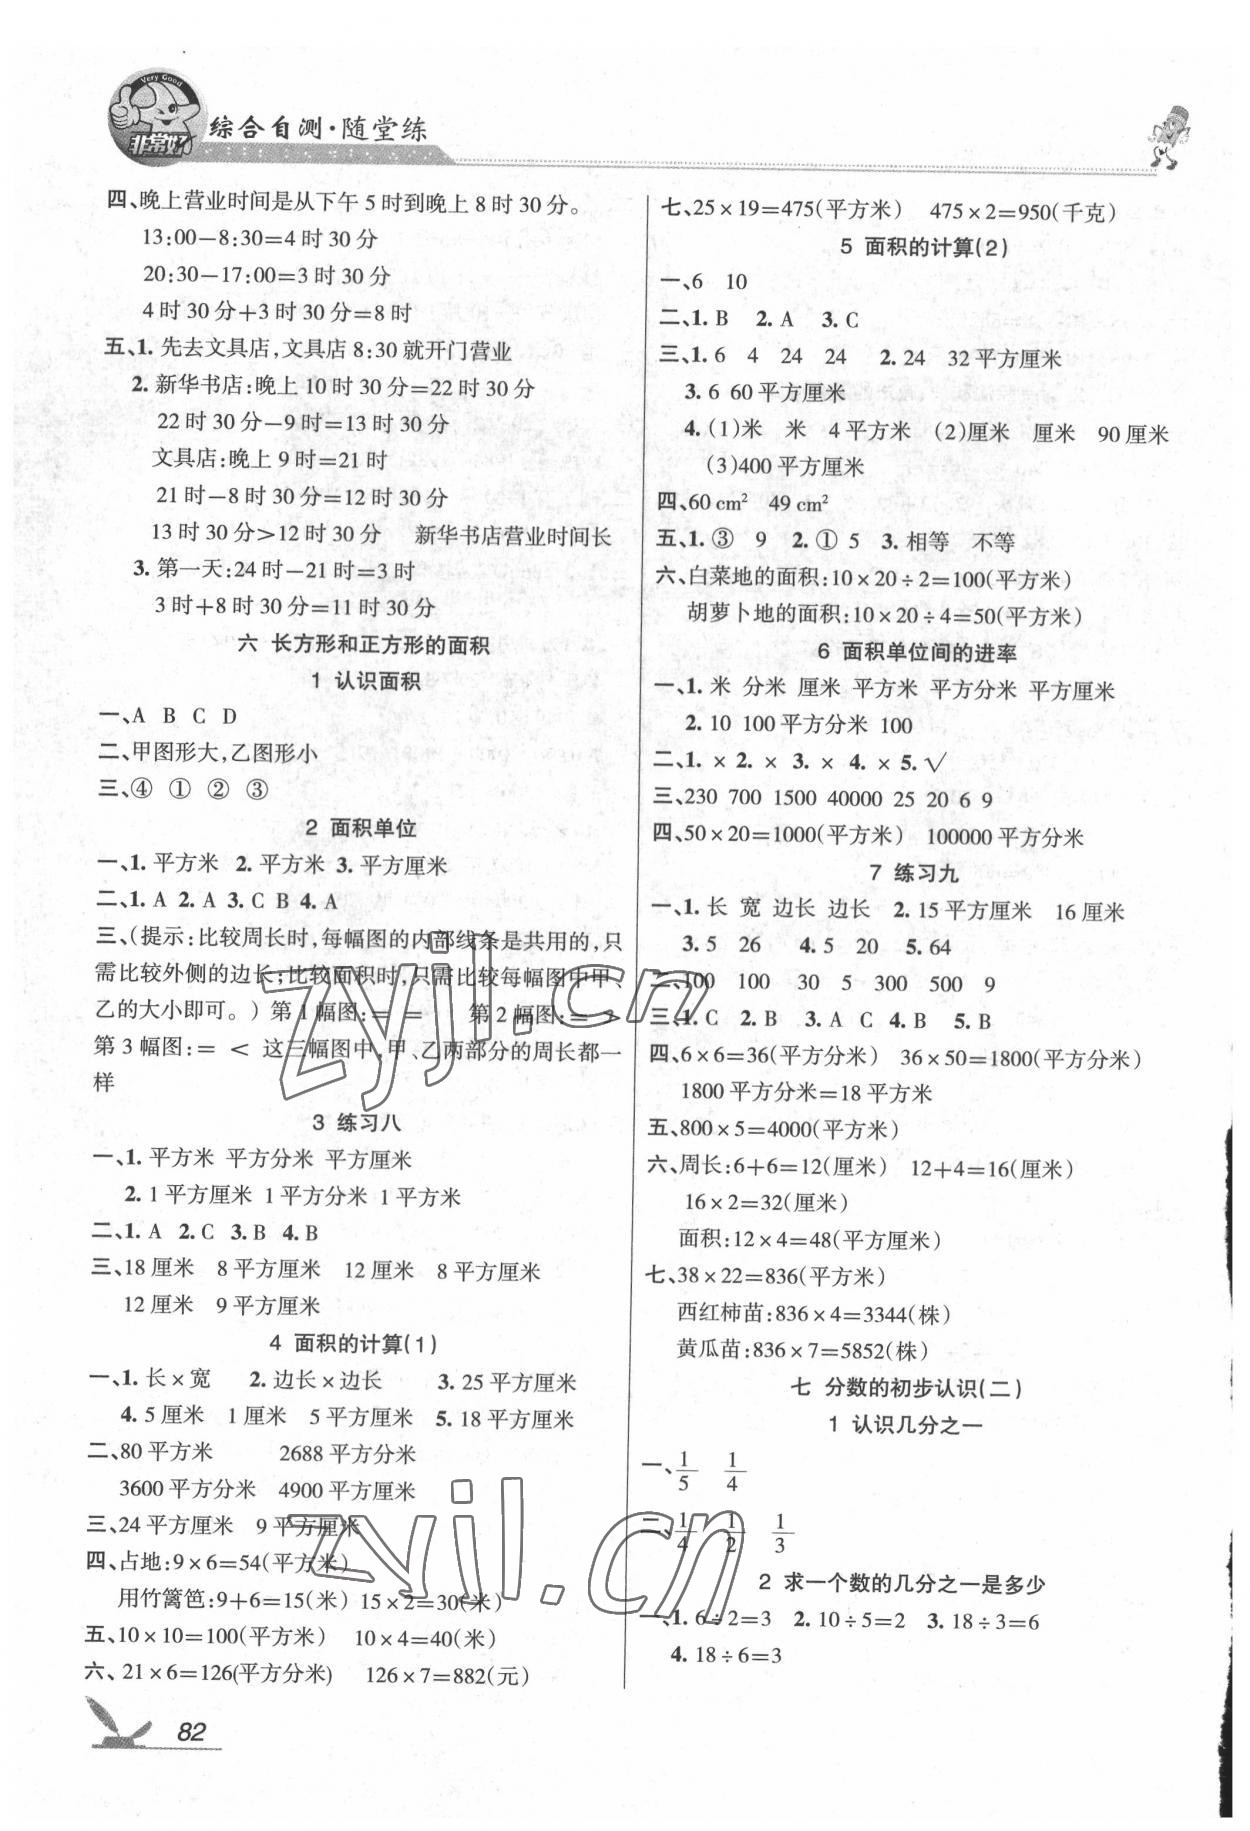 Very Good
非常好
综合自测·随堂练
四、晚上营业时间是从下午5时到晚上8时30分。
13:00－8:30＝4时30分
20:30－17:00＝3时30分
4时30分＋3时30分＝8时
五、1. 先去文具店，文具店8:30就开门营业
2. 新华书店：晚上10时30分＝22时30分
22时30分－9时＝13时30分
文具店：晚上9时＝21时
21时－8时30分＝12时30分
13时30分＞12时30分 新华书店营业时间长
3. 第一天：24时－21时＝3时
3时＋8时30分＝11时30分
六 长方形和正方形的面积
1 认识面积
一、A B C D
二、甲图形大，乙图形小
三、④ ① ② ③
2 面积单位
一、1. 平方米 2. 平方米 3. 平方厘米
二、1. A 2. A 3. C B 4. A
三、（提示：比较周长时，每幅图的内部线条是共用的，只
需比较外侧的边长；比较面积时，只需比较每幅图中甲、
乙的大小即可。）第1幅图：＝ ＝ 第2幅图：＝ ＞
第3幅图：＝ ＜ 这三幅图中，甲、乙两部分的周长都一
样
3 练习八
一、1. 平方米 平方分米 平方厘米
2. 1平方厘米 1平方分米 1平方米
二、1. A 2. C 3. B 4. B
三、18厘米 8平方厘米 12厘米 8平方厘米
12厘米 9平方厘米
4 面积的计算（1）
一、1. 长×宽 2. 边长×边长 3. 25平方厘米
4. 5厘米 1厘米 5平方厘米 5. 18平方厘米
二、80平方米 2688平方分米
3600平方分米 4900平方厘米
三、24平方厘米 9平方厘米
四、占地：9×6＝54（平方米）
用竹篱笆：9＋6＝15（米） 15×2＝30（米）
五、10×10＝100（平方米） 10×4＝40（米）
六、21×6＝126（平方分米） 126×7＝882（元）
82
七、25×19＝475（平方米） 475×2＝950（千克）
5 面积的计算（2）
一、6 10
二、1. B 2. A 3. C
三、1. 6 4 24 24 2. 24 32平方厘米
3. 6 60平方厘米
4.（1）米 米 4平方米 （2）厘米 厘米 90厘米
（3）400平方厘米
四、60 cm² 49 cm²
五、1. ③ 9 2. ① 5 3. 相等 不等
六、白菜地的面积：10×20÷2＝100（平方米）
胡萝卜地的面积：10×20÷4＝50（平方米）
6 面积单位间的进率
一、1. 米 分米 厘米 平方米 平方分米 平方厘米
2. 10 100平方分米 100
二、1. × 2. × 3. × 4. × 5. √
三、230 700 1500 40000 25 20 6 9
四、50×20＝1000（平方米） 100000平方分米
7 练习九
一、1. 长 宽 边长 边长 2. 15平方厘米 16厘米
3. 5 26 4. 5 20 5. 64
二、100 100 30 5 300 500 9
三、1. C 2. B 3. A C 4. B 5. B
四、6×6＝36（平方分米） 36×50＝1800（平方分米）
1800平方分米＝18平方米
五、800×5＝4000（平方米）
六、周长：6＋6＝12（厘米） 12＋4＝16（厘米）
16×2＝32（厘米）
面积：12×4＝48（平方厘米）
七、38×22＝836（平方米）
西红柿苗：836×4＝3344（株）
黄瓜苗：836×7＝5852（株）
七 分数的初步认识（二）
1 认识几分之一
一、1/5 1/4
二、1/4 1/2 1/3
2 求一个数的几分之一是多少
一、1. 6÷2＝3 2. 10÷5＝2 3. 18÷3＝6
4. 18÷6＝3
zyjl.cn
zyjl.cn